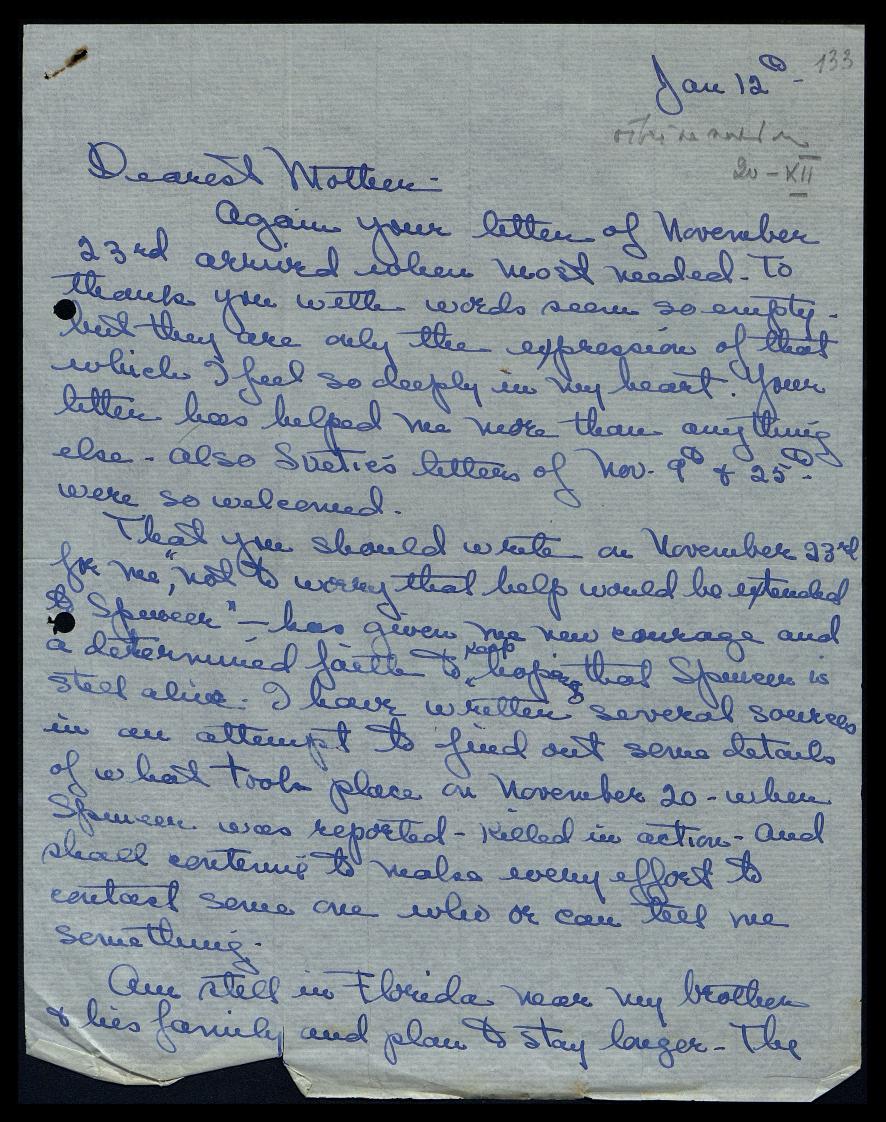 133
Jan 12th -
20-XII
Dearest Mother -
Again your letter of November
23rd arrived when most needed - To
thank you with words seem so empty -
but they are only the expression of that
which I feel so deeply in my heart. Your
letter has helped me more than anything
else - also Sweetie's letters of Nov. 9th & 25th -
were so welcomed.
That you should write on November 23rd
for me, "not to worry that help would be extended
to Spencer" - has given me new courage and
a determined faith to keep hoping that Spencer is
still alive. I have written several sources
in an attempt to find out some details
of what took place on November 20 - when
Spencer was reported - killed in action - and
shall continue to make every effort to
contact some one who or can tell me
something.
Am still in Florida near my brother
& his family and plan to stay longer - The